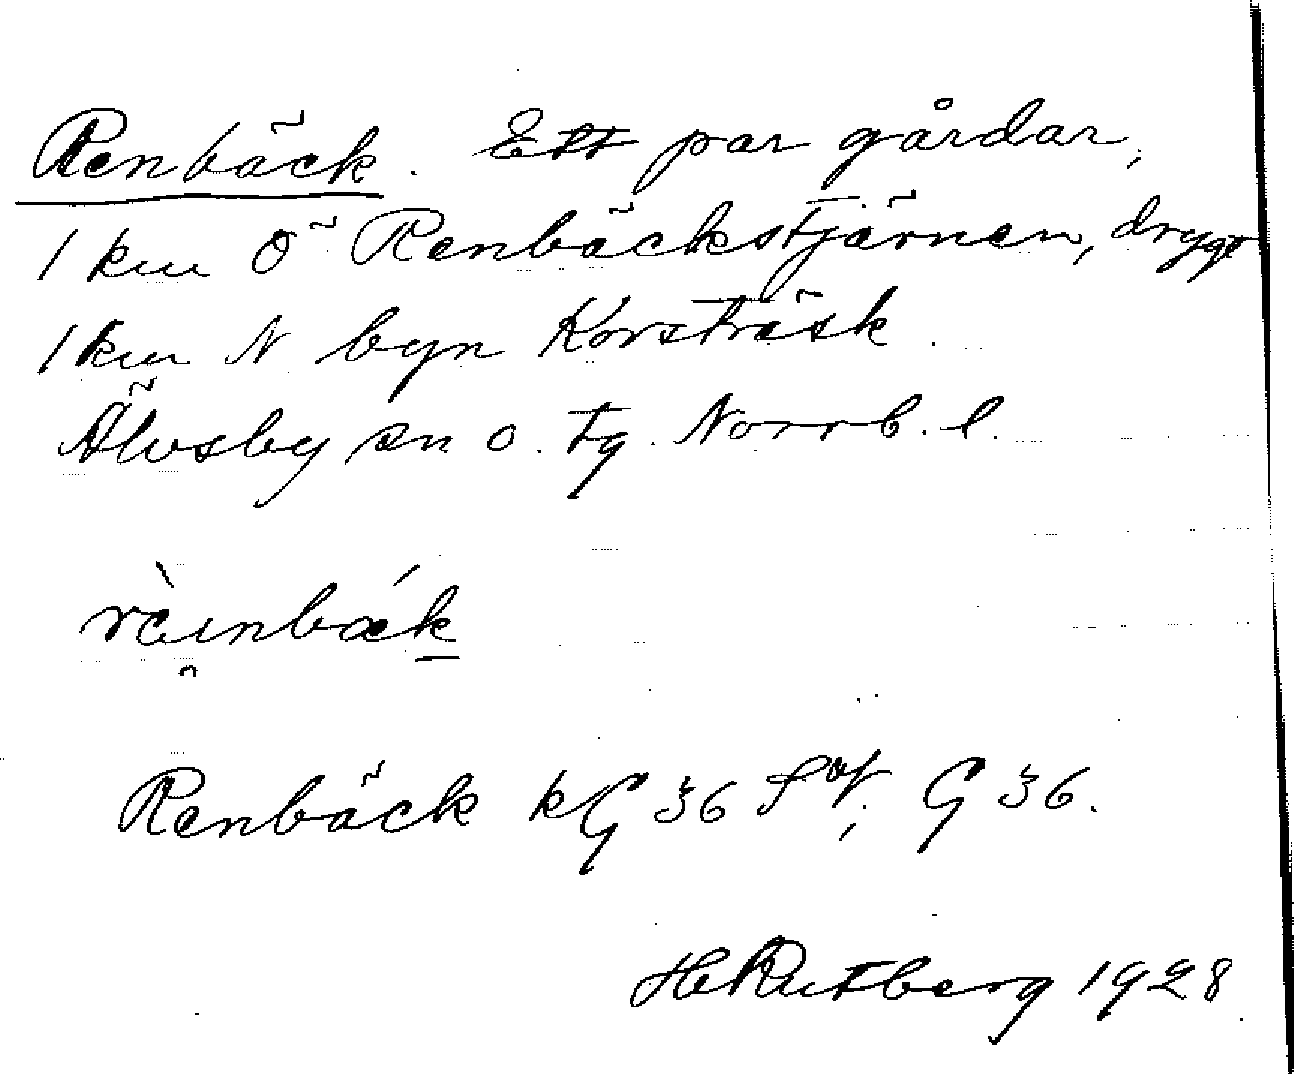 Renbäck. Ett par gårdar,
1 km Ö Renbäckstjärnen, drygt
1 km N byn Korsträsk.
Älvsby sn o. tg. Norrb. l.
Renbäck kG 36 G 36.
H Rutberg 1928